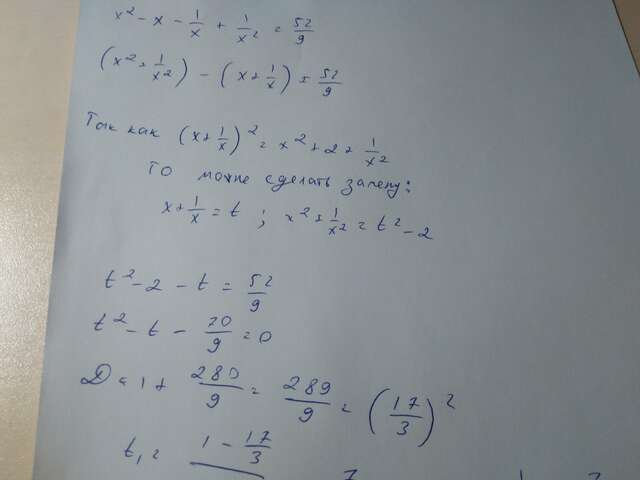 x² - x - 1/x + 1/x² = 52/9
(x² + 1/x²) - (x + 1/x) = 52/9
Так как (x + 1/x)² = x² + 2 + 1/x²
то можно сделать замену:
x + 1/x = t ; x² + 1/x² = t² - 2
t² - 2 - t = 52/9
t² - t - 70/9 = 0
D = 1 + 280/9 = 289/9 = (17/3)²
t₁ = 1 - 17/3